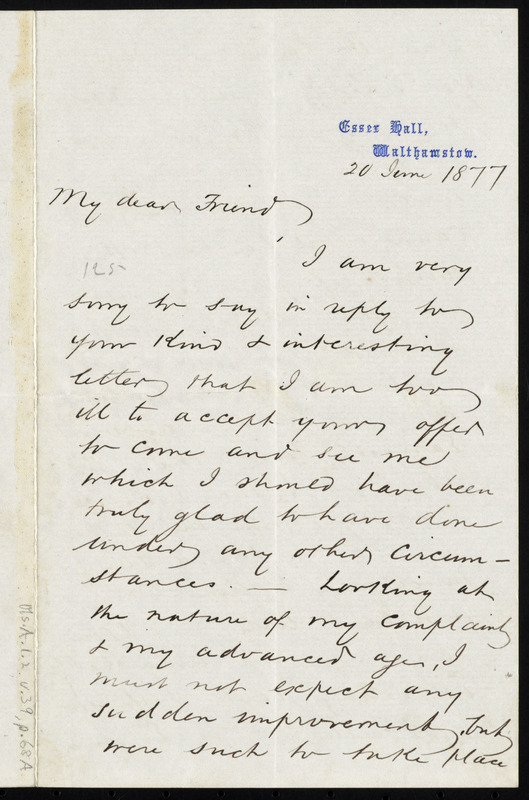 Essex Hall,
Walthamstow.
20 June 1877
My dear Friend,
I am very
125
sorry to say in reply to
your kind & interesting
letter, that I am too
ill to accept your offer
to come and see me
which I should have been
truly glad to have done
under any other circum-
stances. — Looking at
the nature of my complaint
& my advanced age, I
must not expect any
sudden improvement, but
were such to take place
Ms.A.1.2, v.39, p.68A